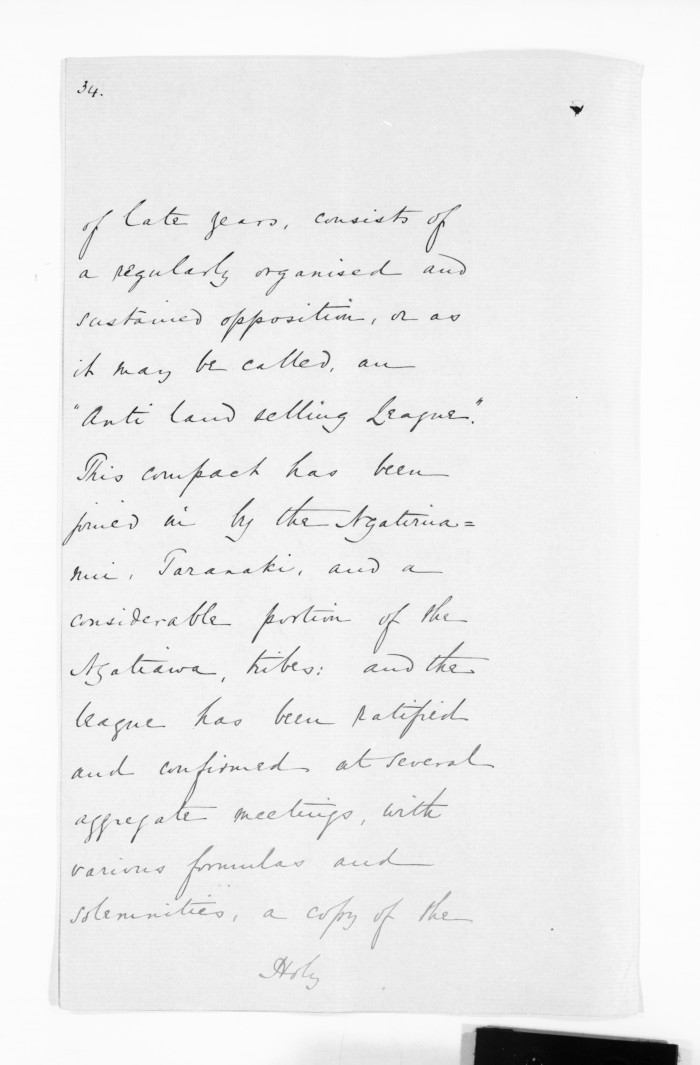 34.
of late years, consists of
a regularly organised and
sustained opposition, or as
it may be called, an
"Anti land selling League".
This compact has been
joined in by the Ngatirua=
nui, Taranaki, and a
considerable portion of the
Ngatiawa, tribes: and the
league has been ratified
and confirmed at several
aggregate meetings, with
various formulas and
solemnities, a copy of the
Holy